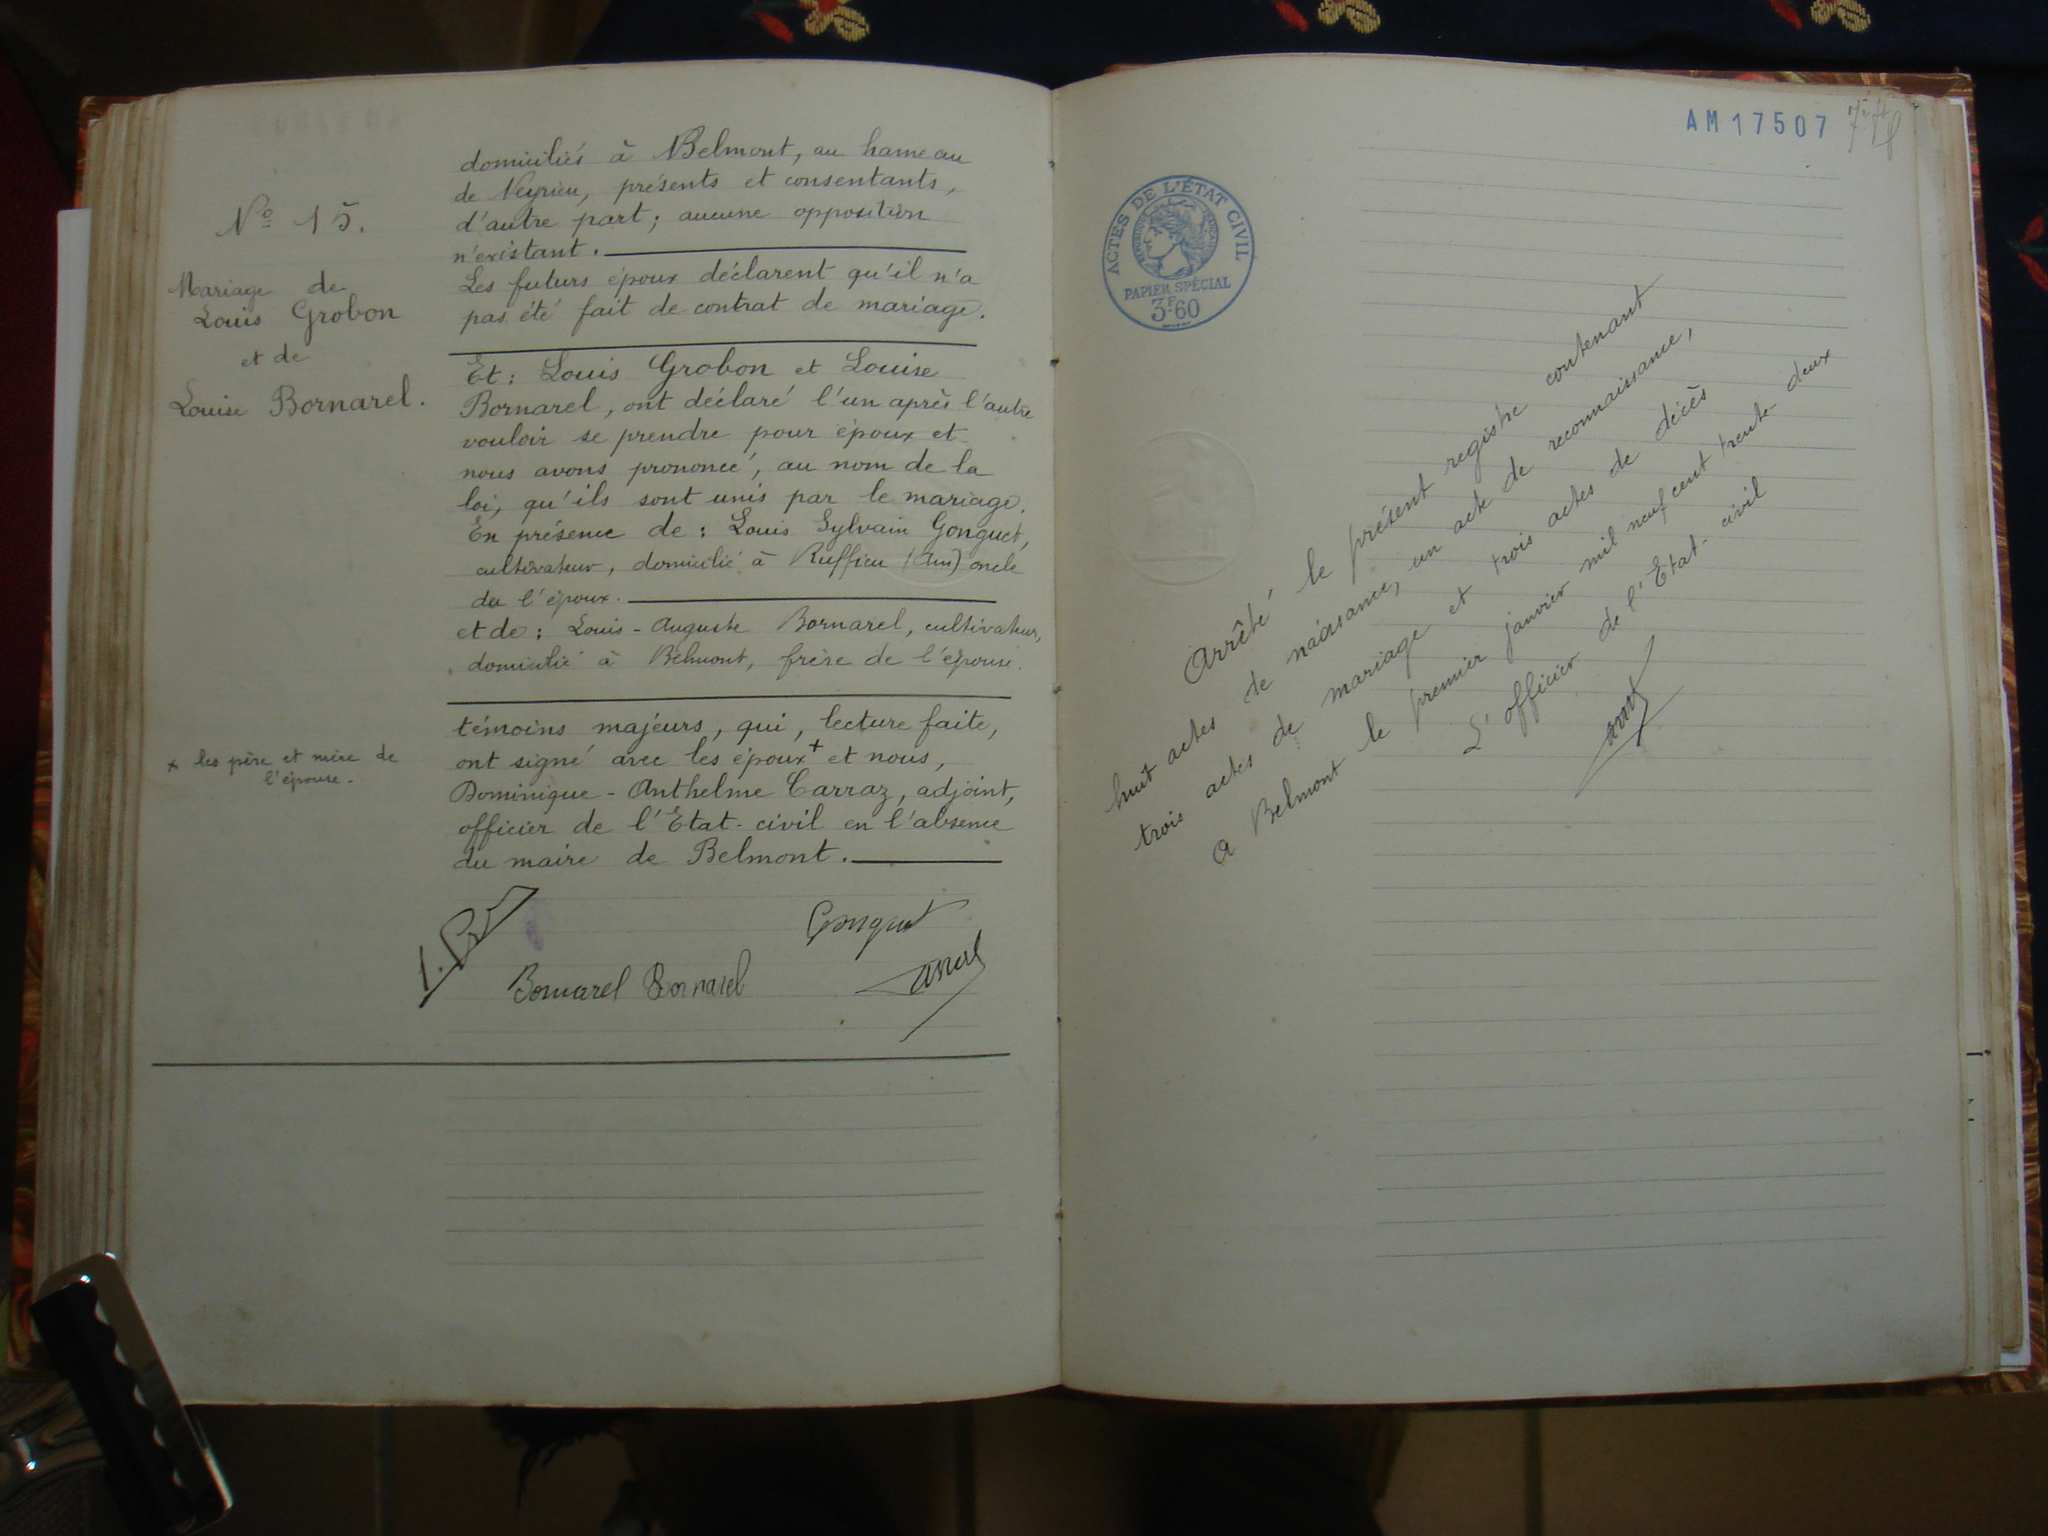 domiciliés à Belmont, au hameau
de Veyrieu, présents et consentants,
d'autre part; aucune opposition
n'existant.
Les futurs époux déclarent qu'il n'a
pas été fait de contrat de mariage.
No 15.
Mariage de
Louis Grobon
et de
Louise Bornarel.
Et: Louis Grobon et Louise
Bornarel, ont déclaré l'un après l'autre
vouloir se prendre pour époux et
nous avons prononcé, au nom de la
loi, qu'ils sont unis par le mariage.
En présence de: Louis Sylvain Gonguet,
cultivateur, domicilié à Ruffieu (Ain) oncle
de l'époux.
et de: Louis-Auguste Bornarel, cultivateur,
domicilié à Belmont, frère de l'épouse.
témoins majeurs, qui, lecture faite,
ont signé avec les époux + et nous,
Dominique-Anthelme Carraz, adjoint,
officier de l'Etat-civil en l'absence
du maire de Belmont.
x les père et mère de
l'épouse-
Gonguet
Bornarel Bornarel
AM17507
ACTES DE L'ÉTAT CIVIL
PAPIER SPÉCIAL
3F.60
Arrêté le présent registre contenant
huit actes de naissance, un acte de reconnaissance,
trois actes de mariage et trois actes de décès
A Belmont le premier janvier mil neuf cent trente-deux
L'officier de l'Etat-civil